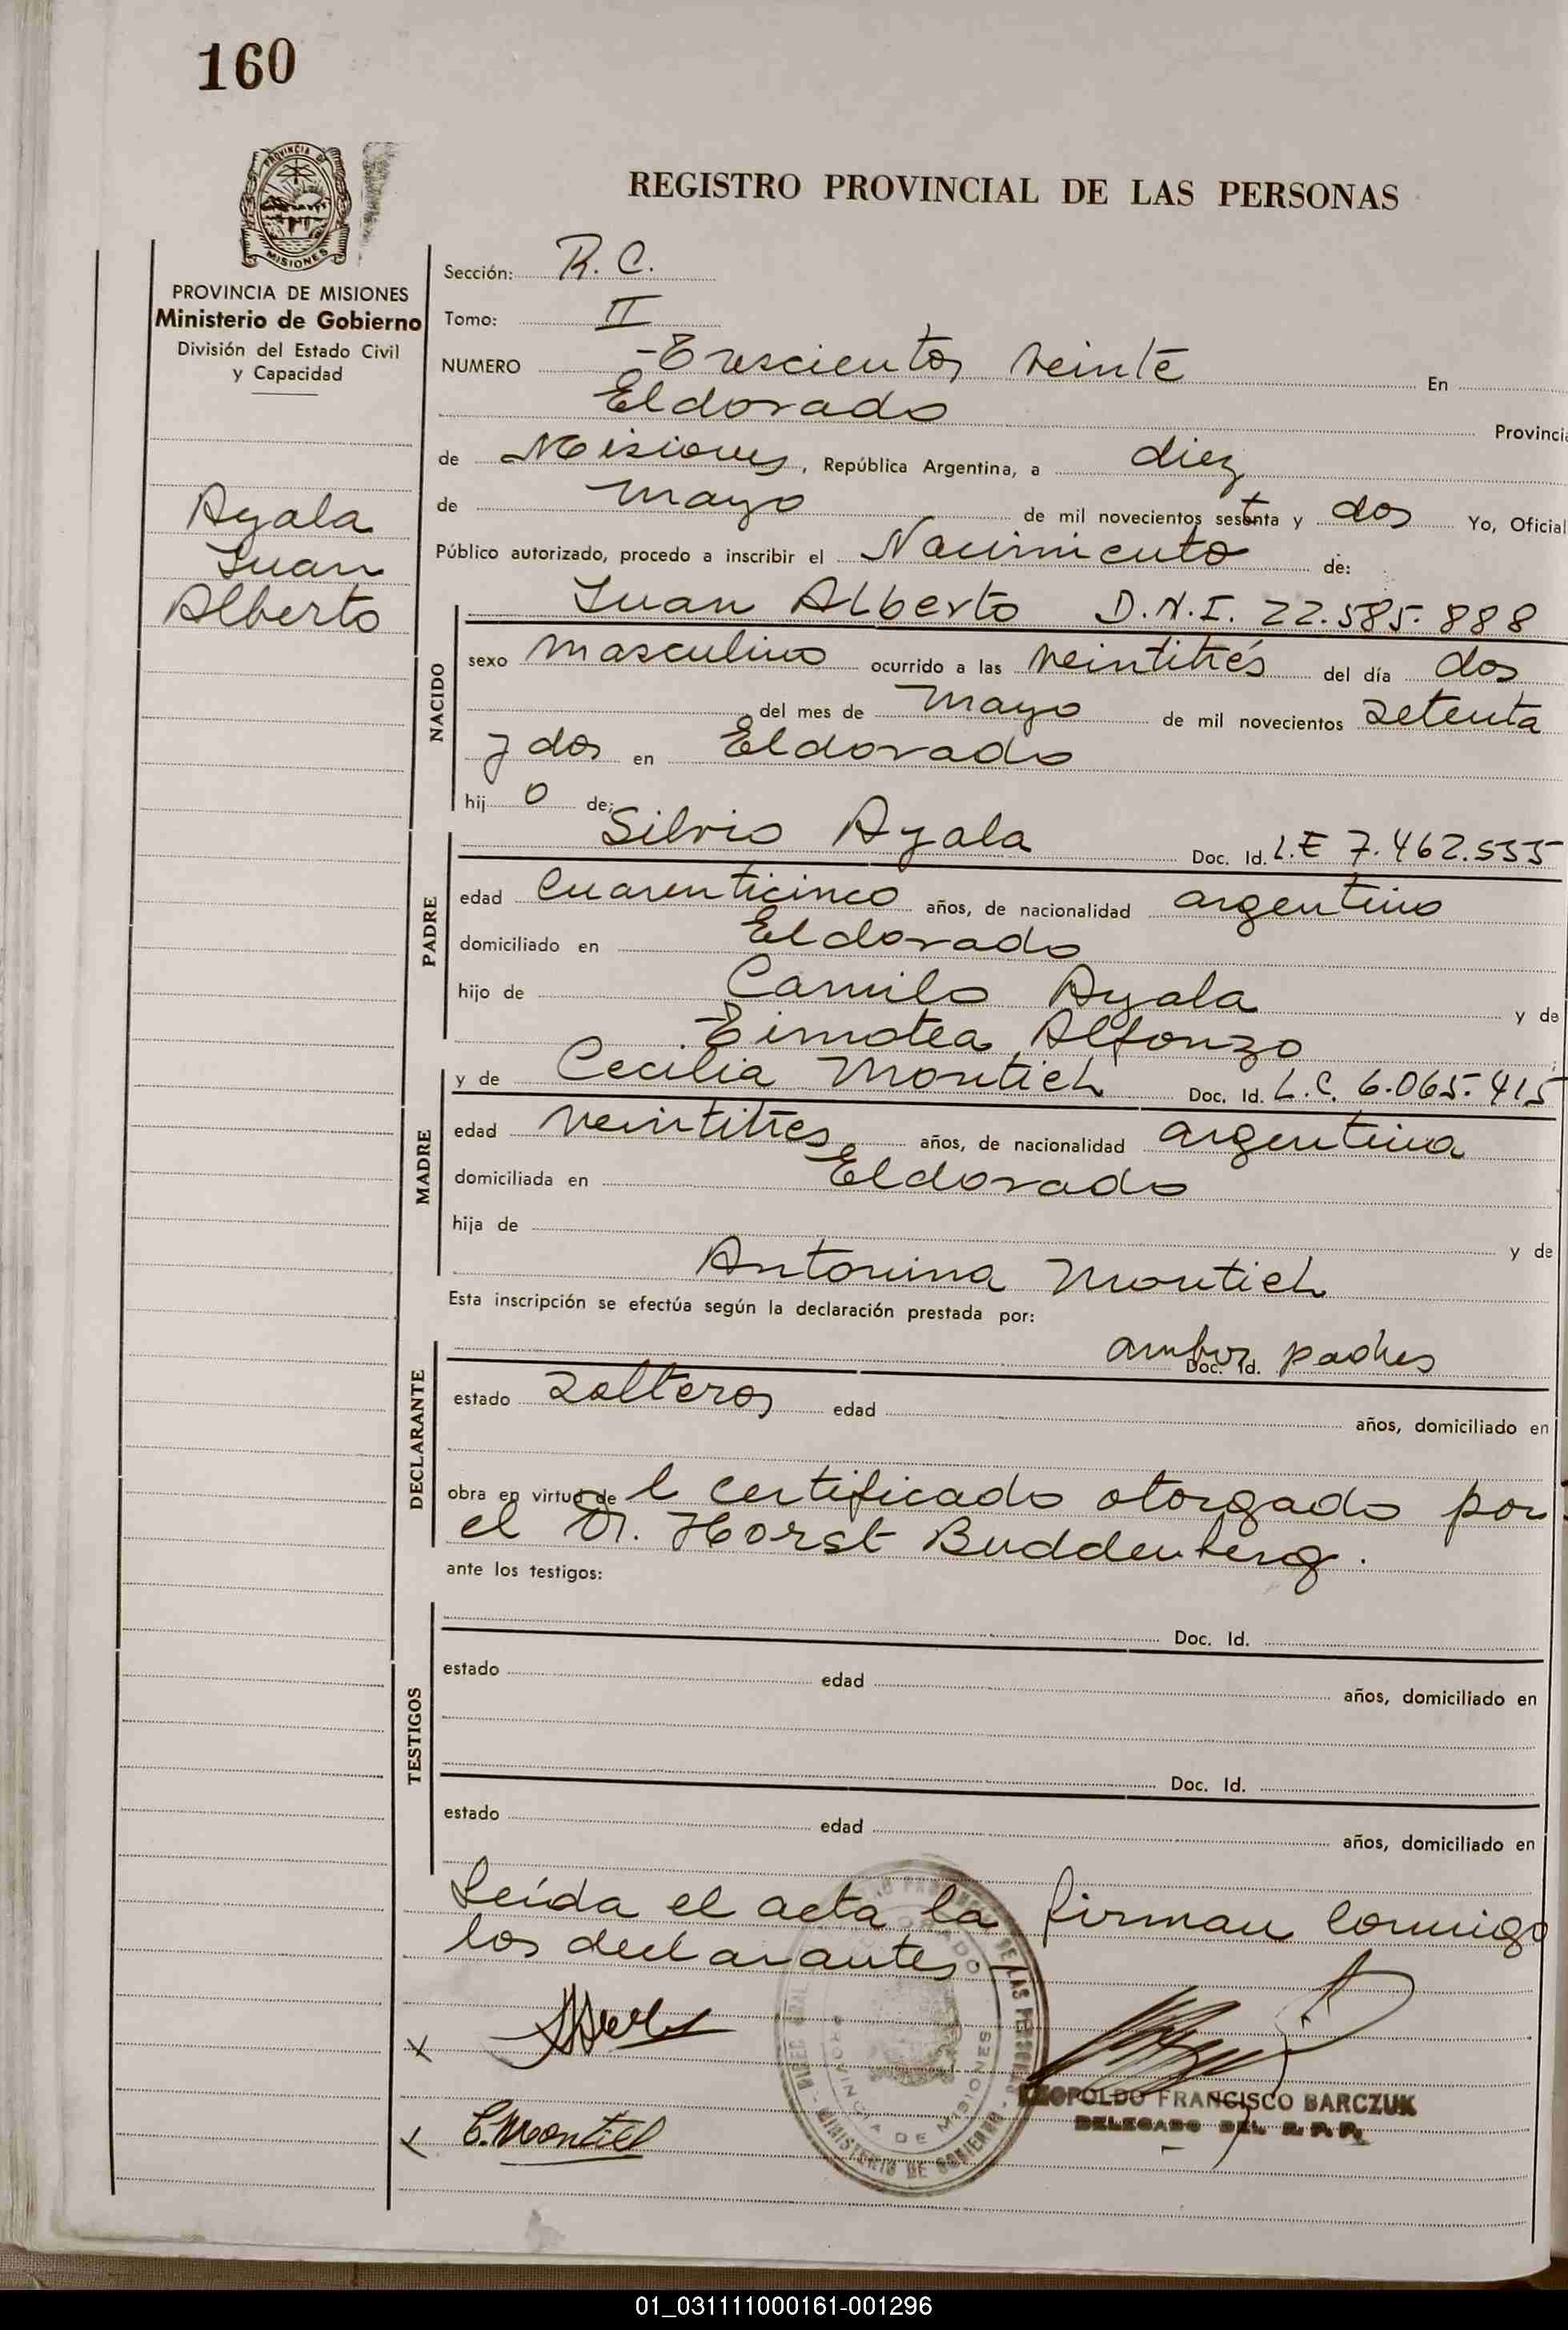 160
PROVINCIA DE
MISIONES
PROVINCIA DE MISIONES
Ministerio de Gobierno
División del Estado Civil
y Capacidad
Ayala
Juan
Alberto
REGISTRO PROVINCIAL DE LAS PERSONAS
Sección: R. C.
Tomo: II
NUMERO Trescientos veinte En
Eldorado Provincia
de Misiones, República Argentina, a diez
de mayo de mil novecientos setenta y dos Yo, Oficial
Público autorizado, procedo a inscribir el Nacimiento de:
Juan Alberto D.N.I. 22.585.888
NACIDO
sexo masculino ocurrido a las veintitrés del día dos
del mes de mayo de mil novecientos setenta
y dos en Eldorado
hij o de:
PADRE
Silvio Ayala Doc. Id. L.E 7.462.535
edad cuarenticinco años, de nacionalidad argentino
domiciliado en Eldorado
hijo de Camilo Ayala y de
Timotea Alfonzo
MADRE
y de Cecilia Montiel Doc. Id. L.C. 6.065.415
edad veintitres años, de nacionalidad argentina
domiciliada en Eldorado
hija de y de
Antonina Montiel
Esta inscripción se efectúa según la declaración prestada por:
DECLARANTE
ambos padres Doc. Id.
estado solteros edad años, domiciliado en
obra en virtud de l certificado otorgado por
el Dr. Horst Buddenberg.
ante los testigos:
TESTIGOS
Doc. Id.
estado edad años, domiciliado en
Doc. Id.
estado edad años, domiciliado en
Leída el acta la firman conmigo
los declarantes.
x
x C. Montiel
PROVINCIA DE MISIONES
MINISTERIO DE GOBIERNO
LEOPOLDO FRANCISCO BARCZUK
DELEGADO DEL R. P. P.
01_031111000161-001296